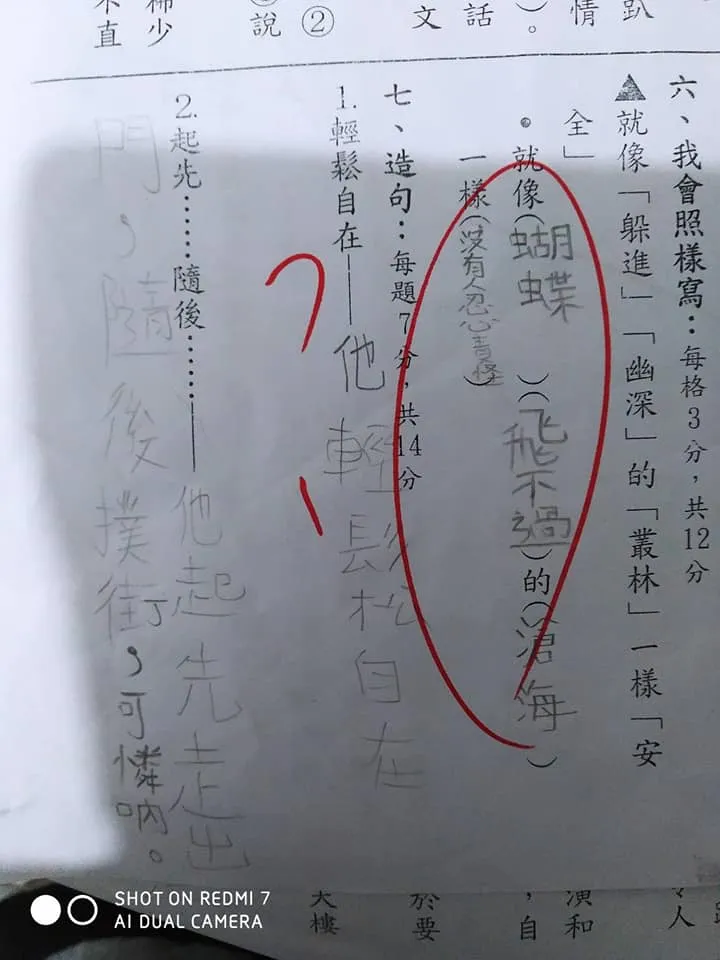 趴
情
）。
話
文
②
說
稀少
不直
六、我會照樣寫：每格3分，共12分
▲就像「躲進」「幽深」的「叢林」一樣「安
全」
●就像（蝴蝶）（飛不過）的（滄海）
一樣（沒有人忍心責怪）
七、造句：每題7分，共14分
1.輕鬆自在——他輕鬆自在
2.起先……隨後……——他起先走出
門，隨後撲街，可憐吶。
人
演和
，自
於要
樓
SHOT ON REDMI 7
AI DUAL CAMERA